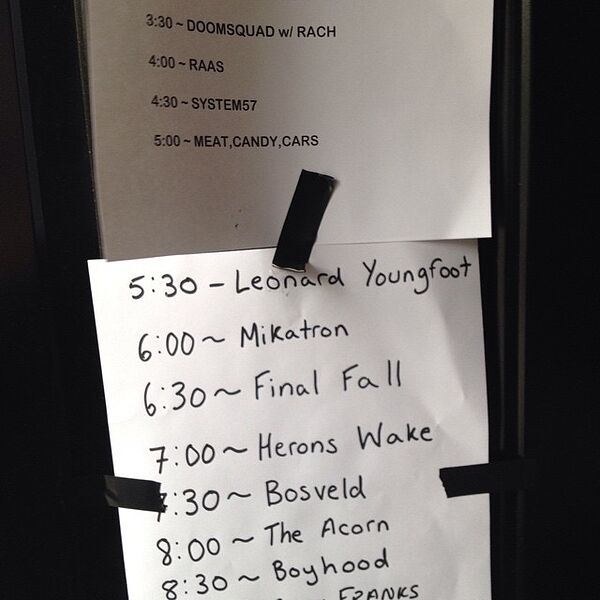 3:30 ~ DOOMSQUAD w/ RACH
4:00 ~ RAAS
4:30 ~ SYSTEM57
5:00 ~ MEAT,CANDY,CARS
5:30 – Leonard Youngfoot
6:00 ~ Mikatron
6:30 ~ Final Fall
7:00 ~ Herons Wake
7:30 ~ Bosveld
8:00 ~ The Acorn
8:30 ~ Boyhood
FRANKS